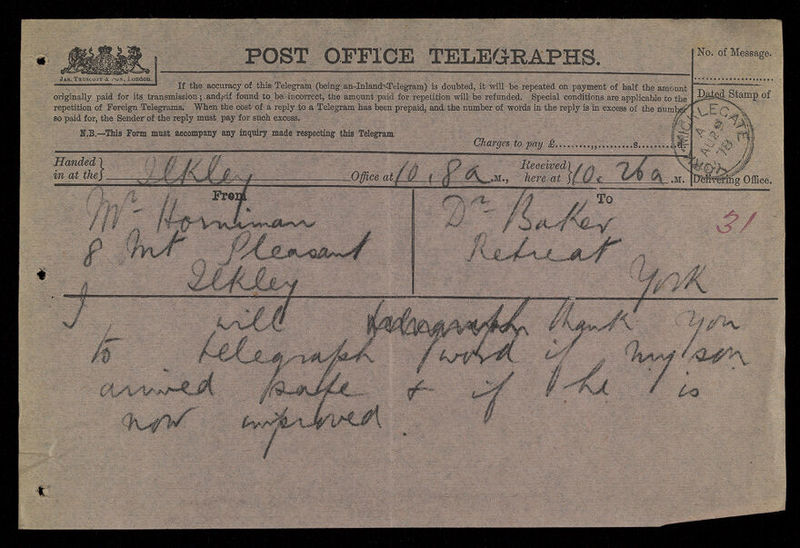 POST OFFICE TELEGRAPHS.
No. of Message.
JAS. TRUSCOTT & SON, London.
If the accuracy of this Telegram (being an Inland Telegram) is doubted, it will be repeated on payment of half the amount
originally paid for its transmission; and, if found to be incorrect, the amount paid for repetition will be refunded. Special conditions are applicable to the
repetition of Foreign Telegrams. When the cost of a reply to a Telegram has been prepaid, and the number of words in the reply is in excess of the number
so paid for, the Sender of the reply must pay for such excess.
N.B.—This Form must accompany any inquiry made respecting this Telegram
Charges to pay £ s.
Dated Stamp of
YORK MICKLEGATE
A
AU 29
78
Delivering Office.
Handed in at the} Ilkley Office at 10.8 a .M., Received here at} 10.26 a .M.
From
Mr Horniman
8 Mt Pleasant
Ilkley
To
Dr Baker
Retreat
York
31
I will telegraph thank you
to telegraph word if my son
arrived safe & if he is
now improved.